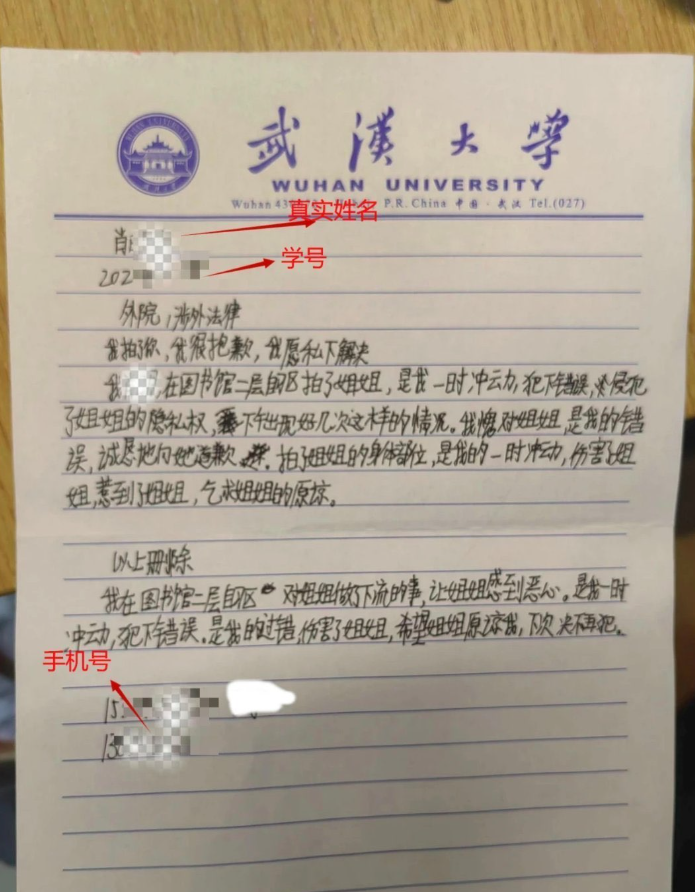 武漢大學
WUHAN UNIVERSITY
Wuhan 43 P.R. China 中国·武汉 Tel.(027)
真实姓名
肖
202
学号
外院,涉外法律
我拍了你,我很抱歉,我愿私下解决
我 ,在图书馆二层B区拍了姐姐,是我一时冲动,犯下错误,侵犯
了姐姐的隐私权, 下午出现好几次这样的情况。我愧对姐姐,是我的错
误,诚恳地向她道歉 。拍了姐姐的身体部位,是我的一时冲动,伤害了姐
姐,惹到了姐姐,乞求姐姐的原谅。
以上删除
我在图书馆二层B区 对姐姐做了下流的事,让姐姐感到恶心。是我一时
冲动,犯下错误。是我的过错,伤害了姐姐,希望姐姐原谅我,下次决不再犯。
手机号
15
13